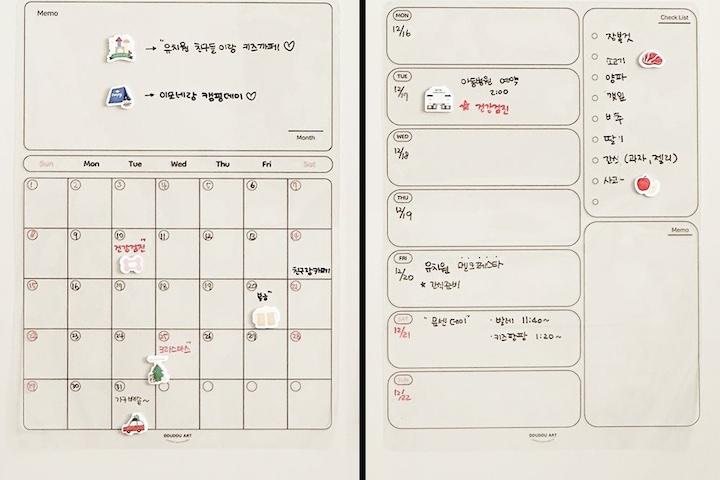 Memo
→ "유치원 친구들이랑 키즈까페 ♡
→ 이모네랑 캠핑데이 ♡
Month
Sun Mon Tue Wed Thu Fri Sat
1 2 3 4 5 6 7
8 9 10 11 12 13 14
건강검진"
친구랑카페
15 16 17 18 19 20 21
22 23 24 25 26 27 28
크리스마스"
29 30 31
가구배송~
DDUDDU ART
MON
12/16
TUE
12/17
아동병원 예약
2:00
★ 건강검진
WED
12/18
THU
12/19
FRI
12/20
유치원
★ 간식준비
SAT
12/21
"문센데이" · 발레 11:40~
· 키즈팡팡 1:20~
SUN
12/22
DDUDDU ART
Check List
장볼것
소고기
양파
깻잎
부추
딸기
간식 (과자, 젤리)
사과~
Memo